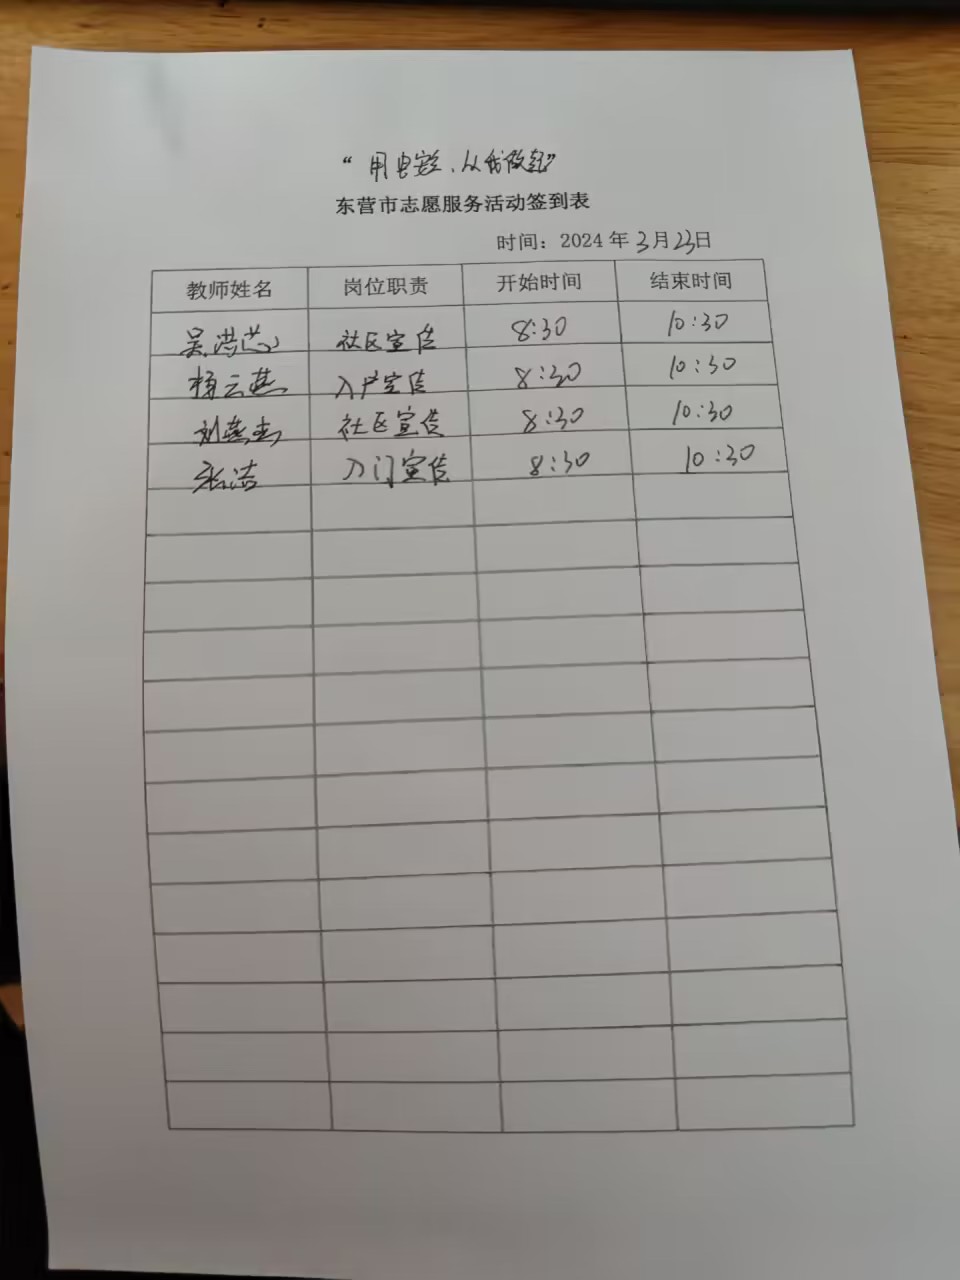 “用电安全、从我做起”
东营市志愿服务活动签到表
时间：2024年3月23日
教师姓名 岗位职责 开始时间 结束时间
吴洪芯 社区宣传 8:30 10:30
杨云燕 入户宣传 8:30 10:30
刘燕 社区宣传 8:30 10:30
张洁 入门宣传 8:30 10:30